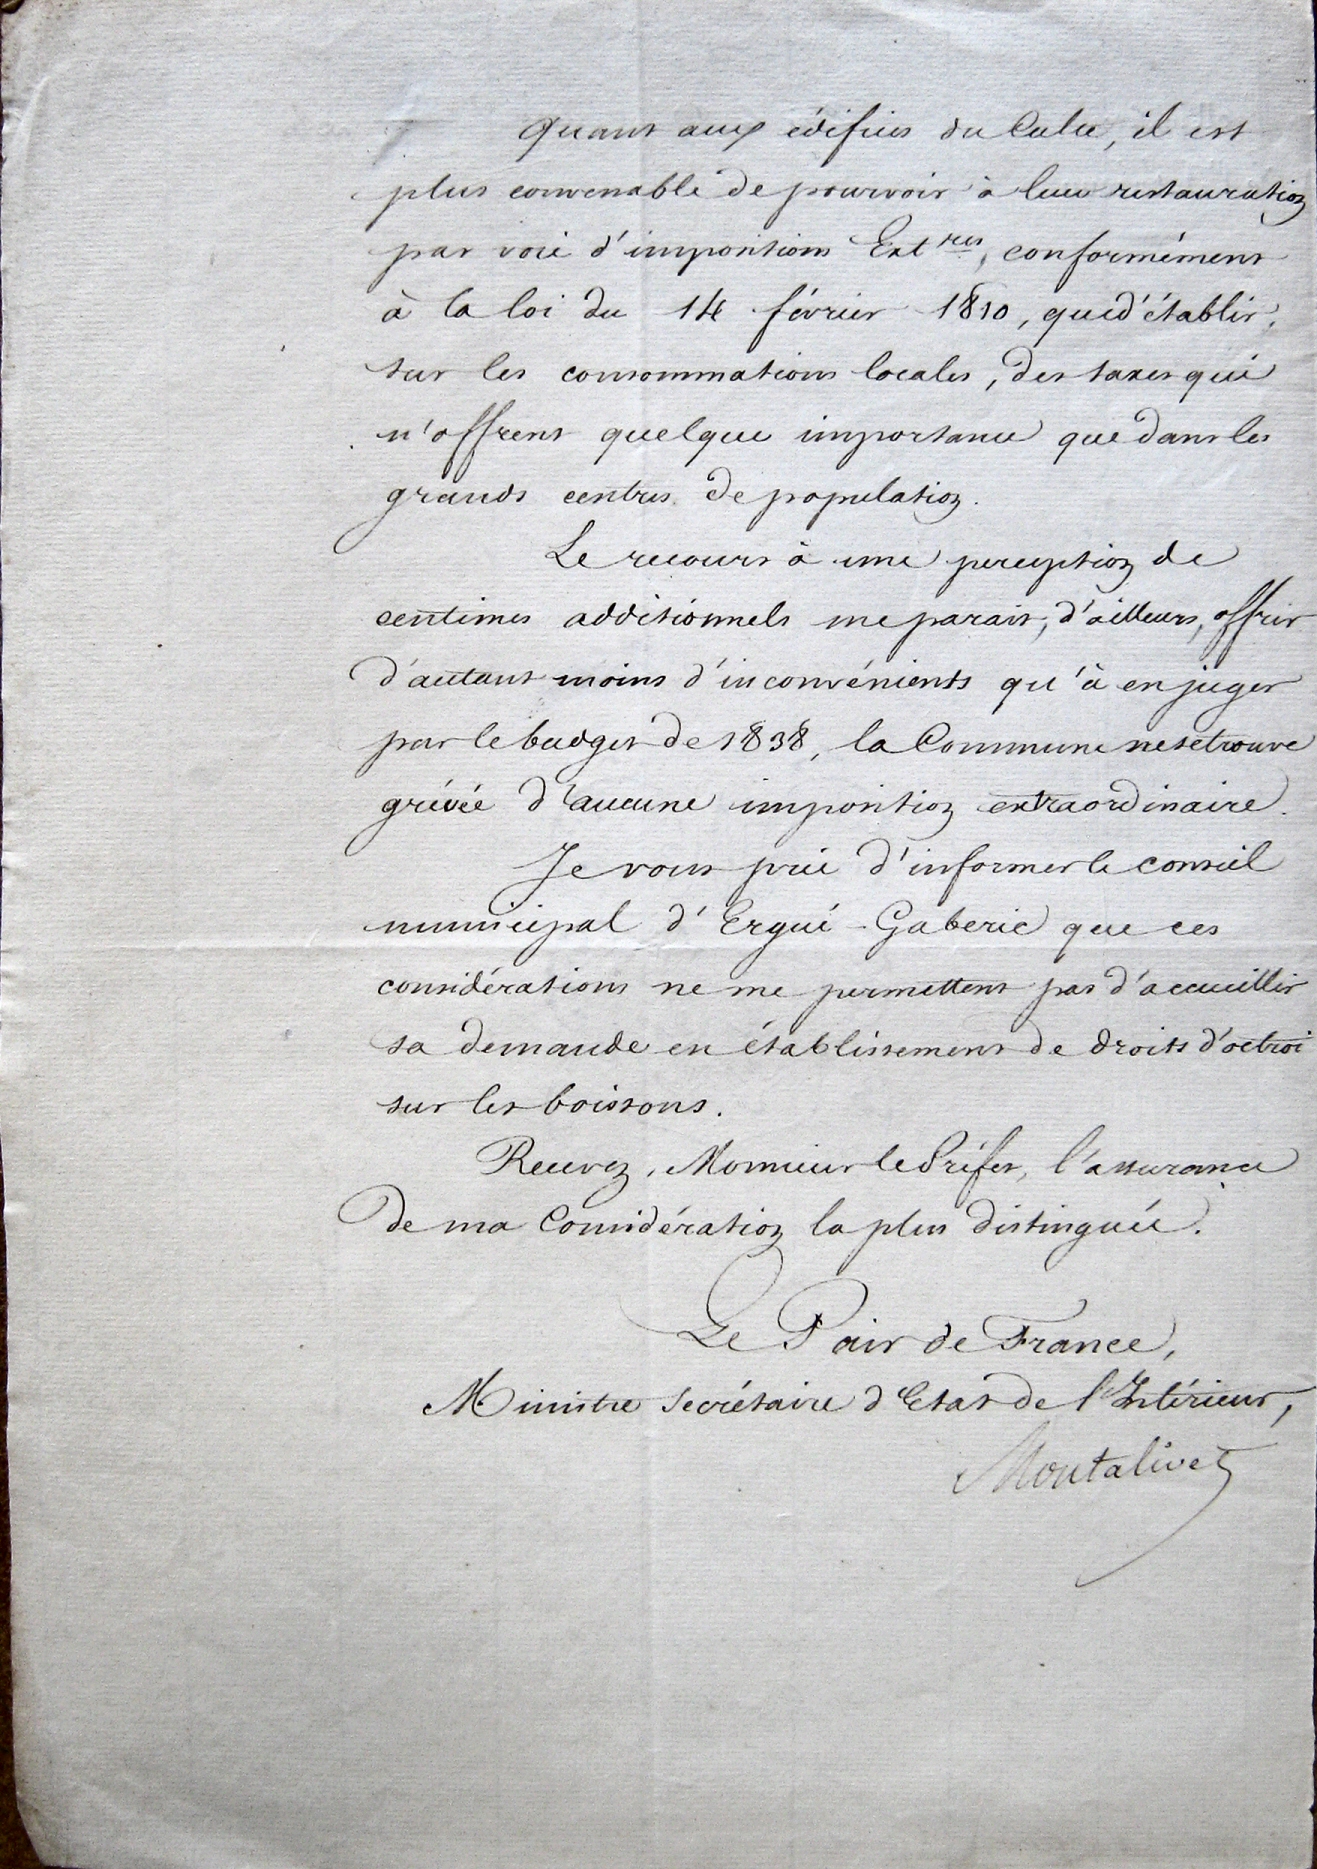 Quant aux édifices du Culte, il est
plus convenable de pourvoir à leur restauration
par voie d'impositions Ext^res, conformément
à la loi du 14 février 1810, que d'établir,
sur les consommations locales, des taxes qui
n'offrent quelque importance que dans les
grands centres de population.
Le recours à une perception de
centimes additionnels me parait, d'ailleurs, offrir
d'autant moins d'inconvénients qu'à en juger
par le budget de 1838, la Commune ne se trouve
grévée d'aucune imposition extraordinaire.
Je vous prie d'informer le conseil
municipal d'Ergué-Gaberic que ces
considérations ne me permettent pas d'accueillir
sa demande en établissement de droits d'octroi
sur les boissons.
Recevez, Monsieur le Préfet, l'assurance
de ma Considération la plus distinguée.
Le Pair de France,
Ministre Secrétaire d'Etat de l'Intérieur,
Montalivet